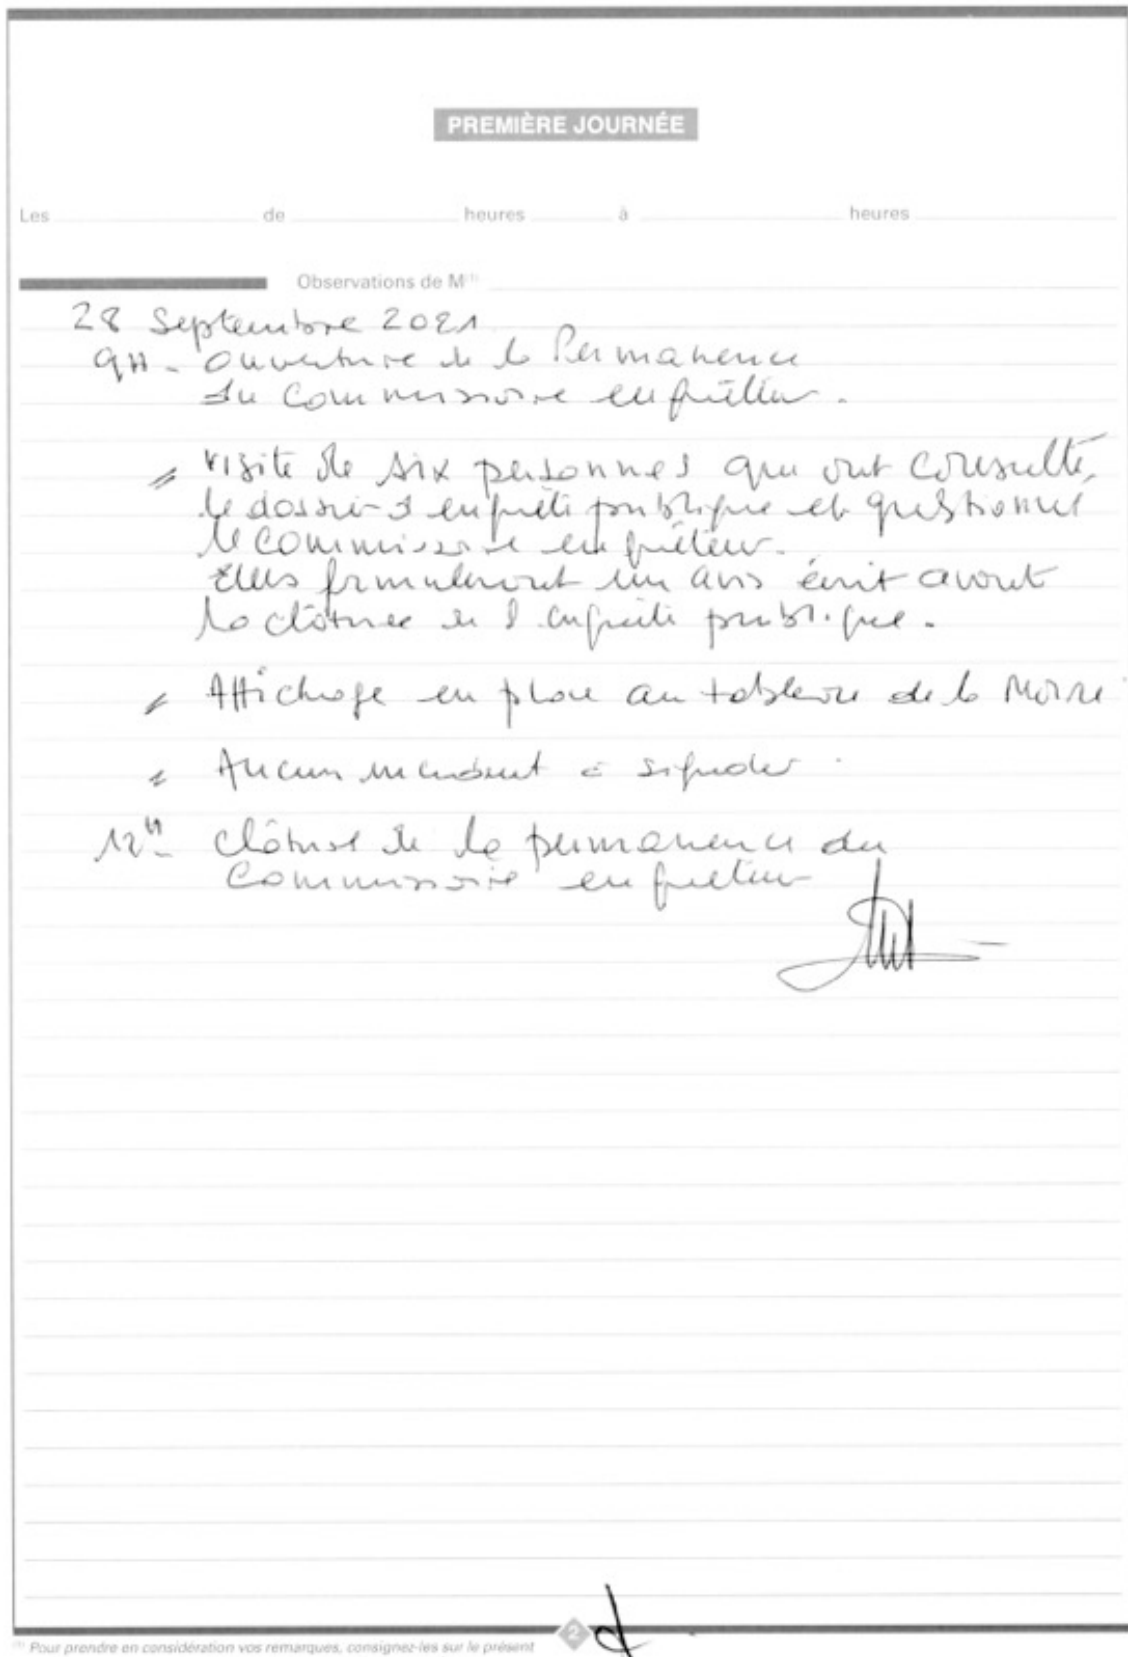 PREMIÈRE JOURNÉE
Les de heures à heures
Observations de M(1)
28 Septembre 2021
9H - Ouverture de la Permanence
du Commissaire enquêteur.
Visite de six personnes qui ont consulté
le dossier d'enquête publique et questionné
le Commissaire enquêteur.
Elles formuleront un avis écrit avant
la clôture de l'enquête publique.
Affichage en place au tableau de la Mairie
Aucun incident à signaler.
12H - Clôture de la permanence du
Commissaire enquêteur
2
(1) Pour prendre en considération vos remarques, consignez-les sur le présent